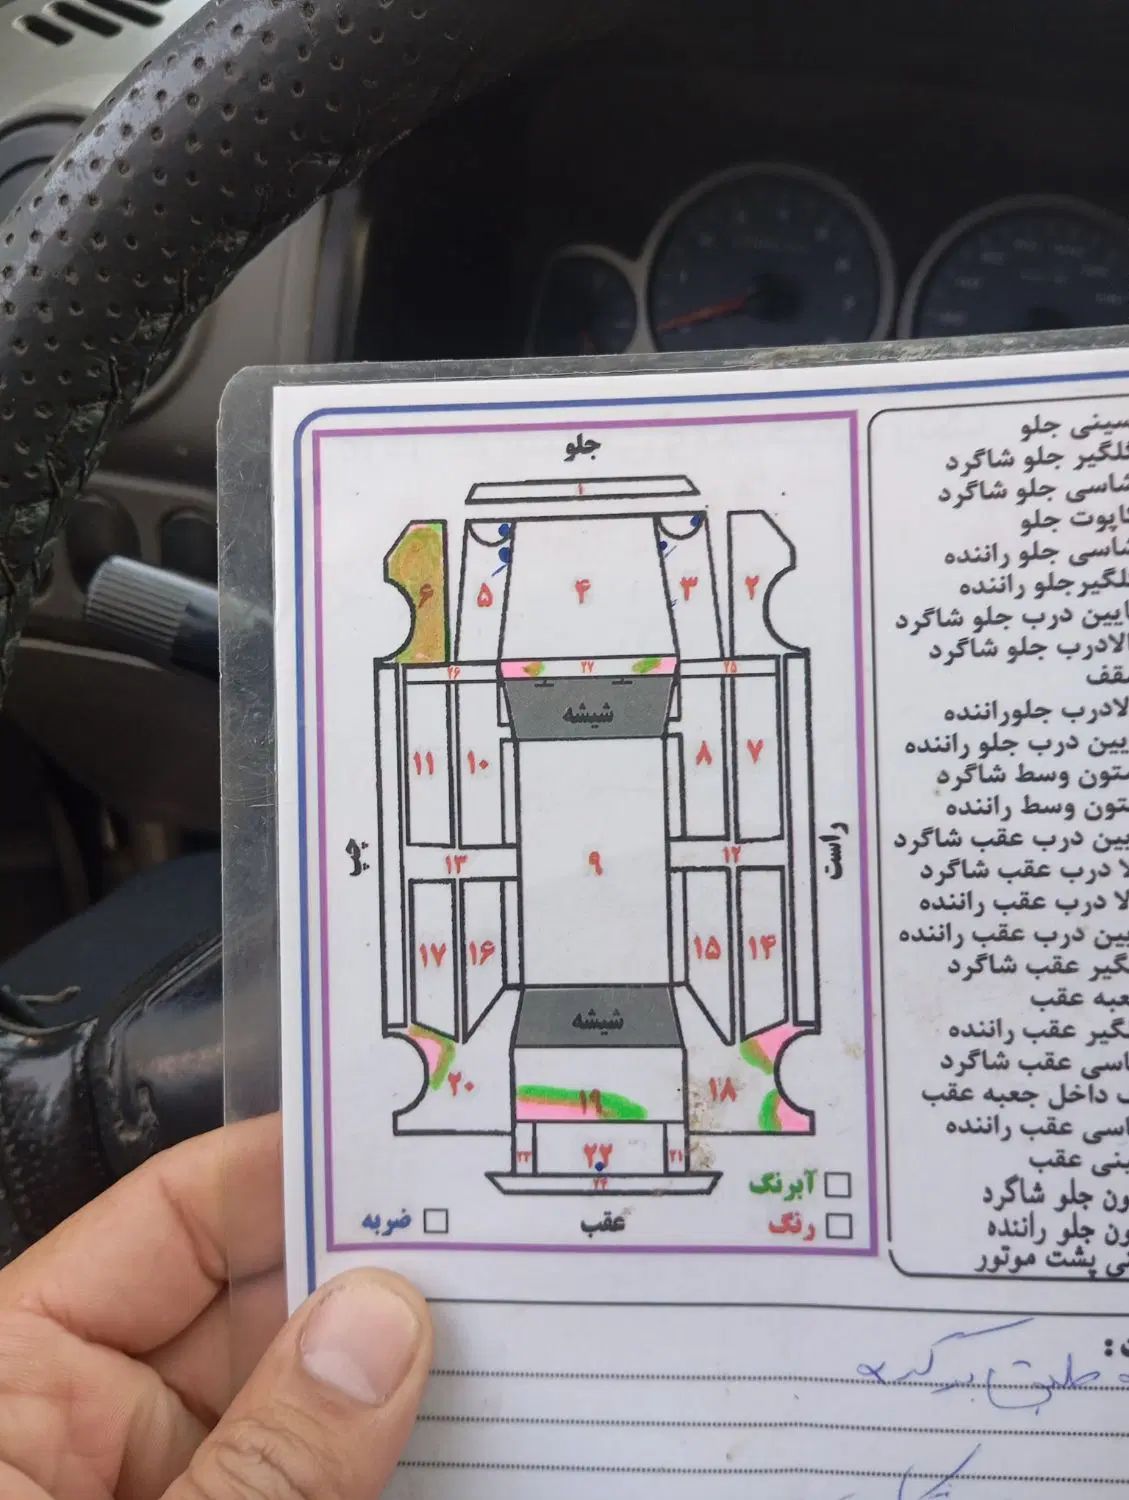 جلو
۱
۶
۵
۴
۳
۲
۲۶
۲۷
۲۵
شیشه
۱۱
۱۰
۸
۷
چپ
راست
۹
۱۳
۱۲
۱۷
۱۶
۱۵
۱۴
شیشه
۲۰
۱۹
۱۸
۲۳
۲۲
۲۱
۲۴
آبرنگ
رنگ
ضربه
عقب
سینی جلو
گلگیر جلو شاگرد
شاسی جلو شاگرد
کاپوت جلو
شاسی جلو راننده
گلگیرجلو راننده
پایین درب جلو شاگرد
بالادرب جلو شاگرد
سقف
الادرب جلوراننده
یین درب جلو راننده
ستون وسط شاگرد
ستون وسط راننده
یین درب عقب شاگرد
لا درب عقب شاگرد
لا درب عقب راننده
یین درب عقب راننده
گیر عقب شاگرد
عبه عقب
گیر عقب راننده
اسی عقب شاگرد
داخل جعبه عقب
اسی عقب راننده
ینی عقب
ون جلو شاگرد
ون جلو راننده
نی پشت موتور
طبق برگه